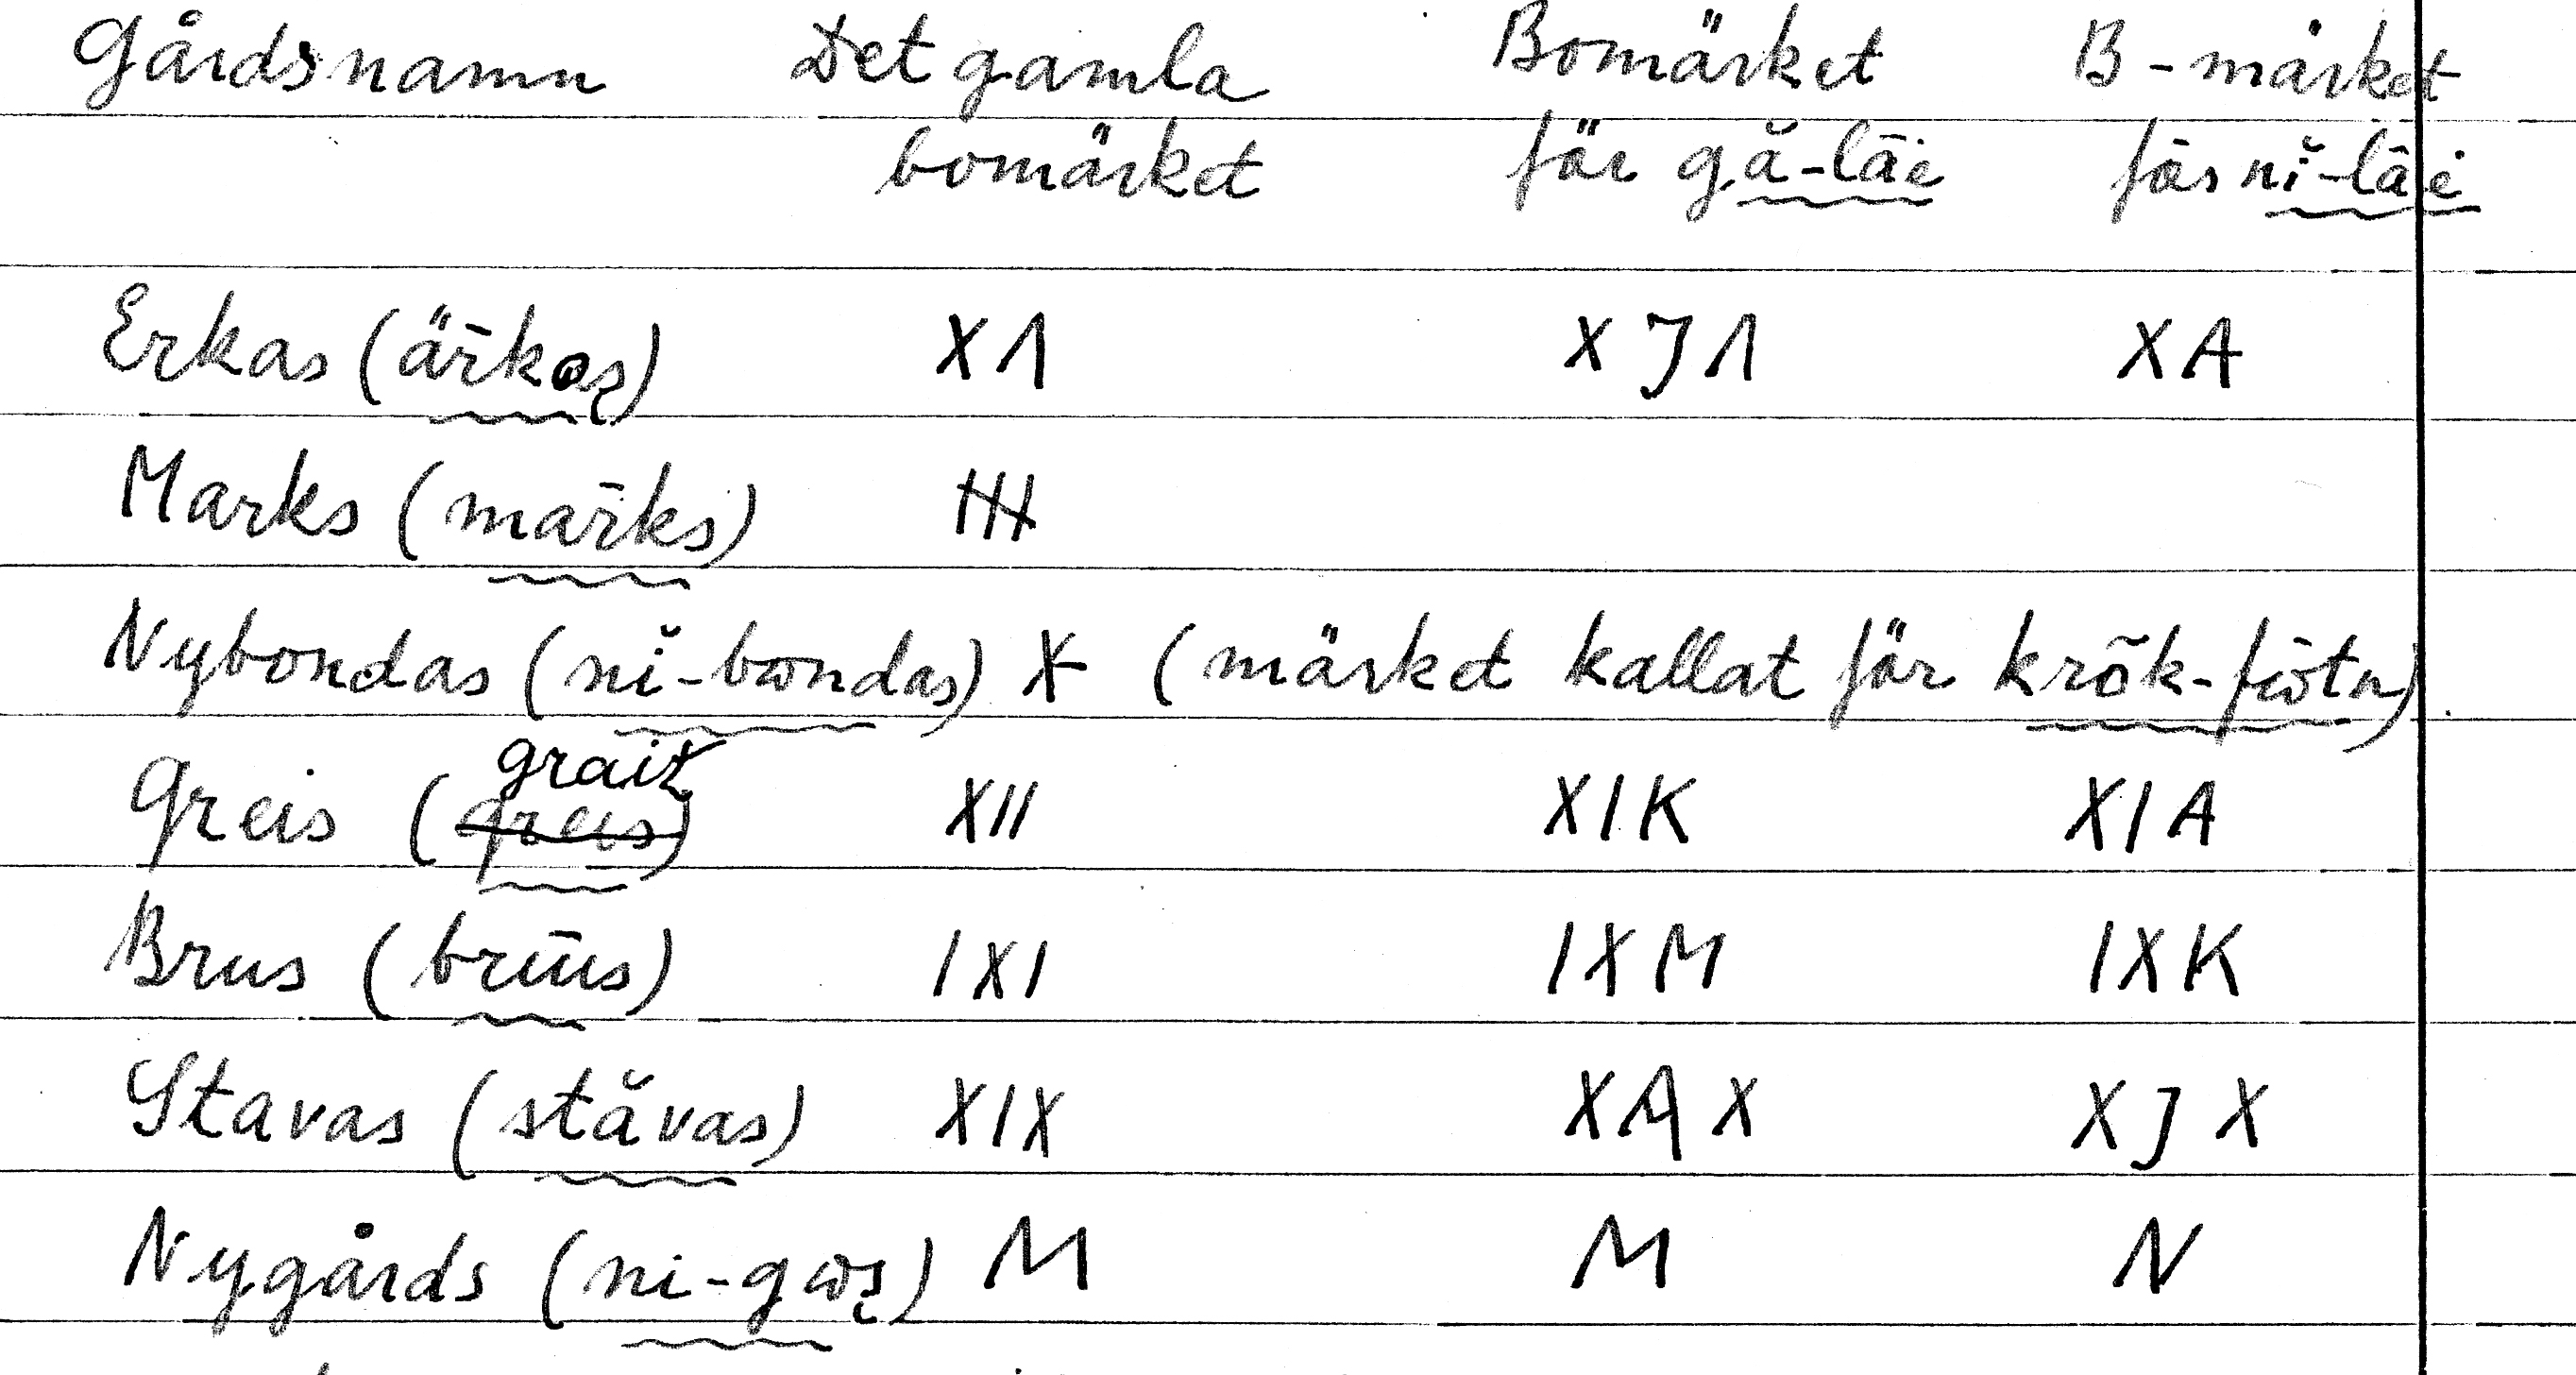 Gårdsnamn Det gamla Bomärket B-märket
bomärket för gă-läi för nĭ-läi
Erkas (ärkas) XΛ XJΛ XA
Marks (marks)
Nybondas (nĭ-bωndas) X (märket kallat för krōk-fωtn)
graiz
Greis (greis) XII XIK XIA
Brus (brūs) IXI IXM IXK
Stavas (stăvas) XIX XAX XJX
Nygårds (ni-gωs) M M N